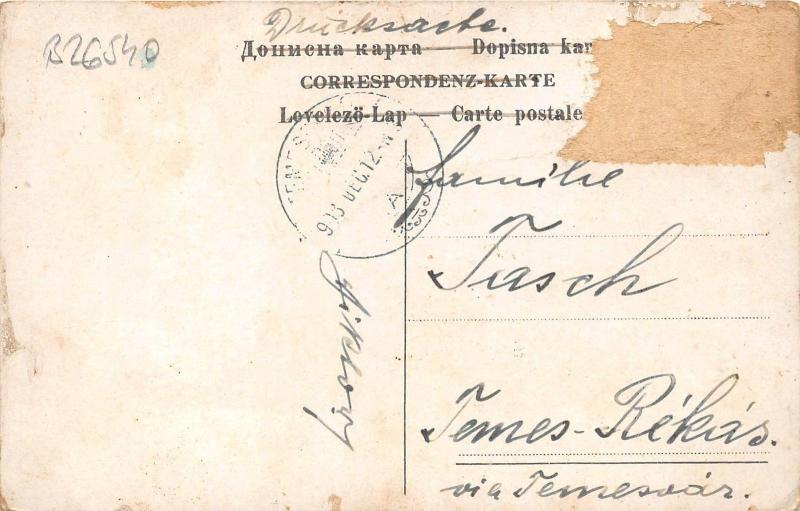 B26540
Drucksache.
Дописна карта — Dopisna kar
CORRESPONDENZ-KARTE
Levelező-Lap — Carte postale
TEMES
913 DEC. 12
A
Familie
Tasch
Temes-Rékás.
via Temesvár.